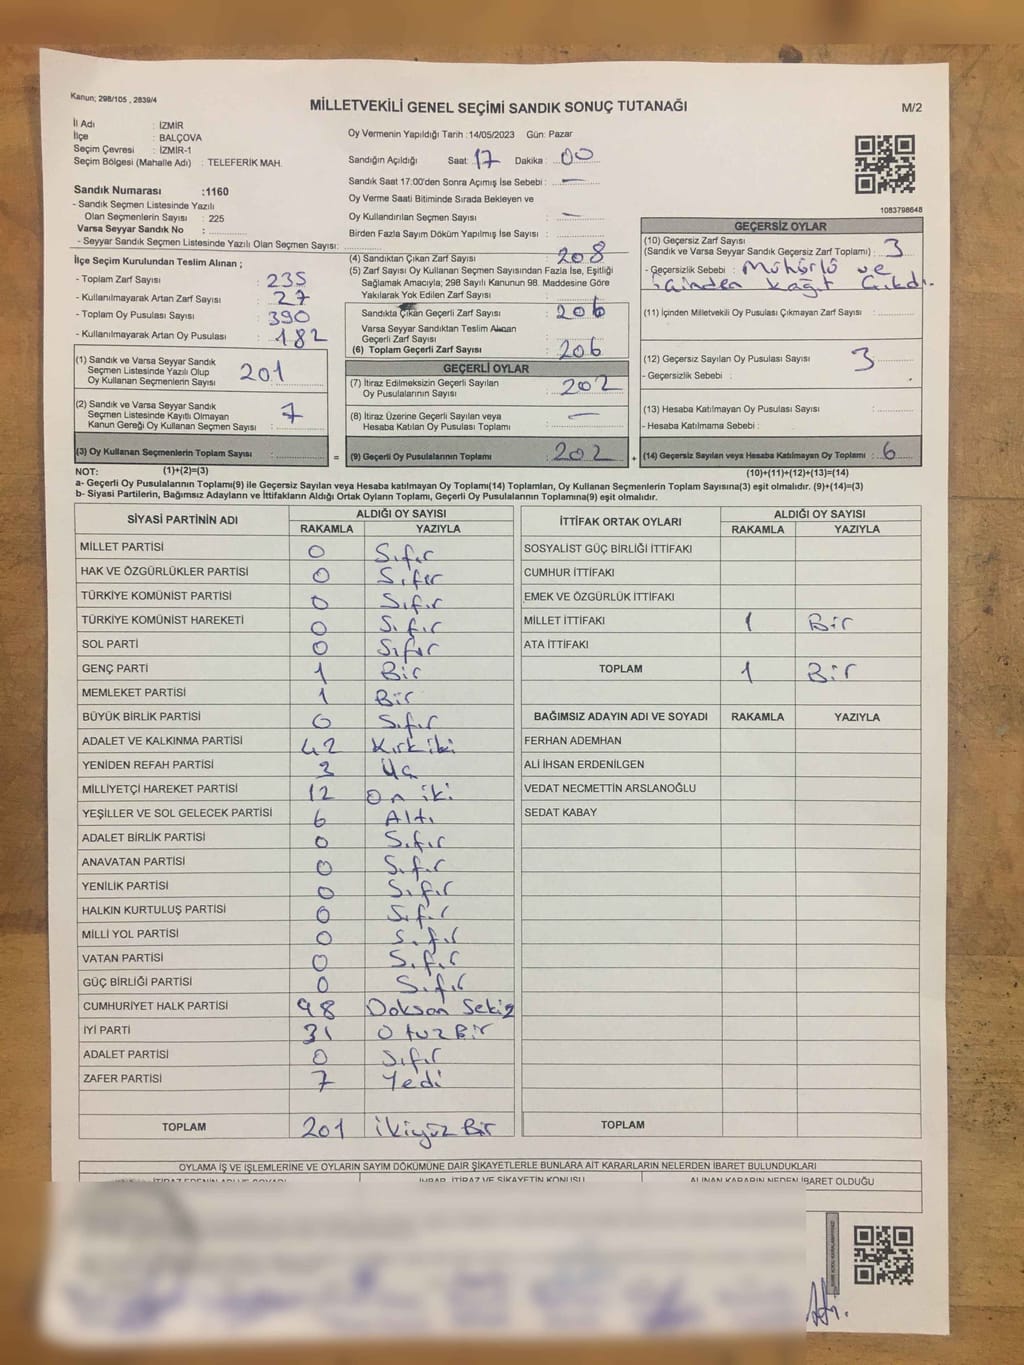 Kanun; 298/105 , 2839/4
MİLLETVEKİLİ GENEL SEÇİMİ SANDIK SONUÇ TUTANAĞI
M/2
İl Adı : İZMİR
İlçe : BALÇOVA
Seçim Çevresi : İZMİR-1
Seçim Bölgesi (Mahalle Adı) : TELEFERİK MAH.
Sandık Numarası :1160
- Sandık Seçmen Listesinde Yazılı
Olan Seçmenlerin Sayısı : 225
Varsa Seyyar Sandık No :
- Seyyar Sandık Seçmen Listesinde Yazılı Olan Seçmen Sayısı:
İlçe Seçim Kurulundan Teslim Alınan ;
- Toplam Zarf Sayısı : 235
- Kullanılmayarak Artan Zarf Sayısı : 27
- Toplam Oy Pusulası Sayısı : 390
- Kullanılmayarak Artan Oy Pusulası : 182
(1) Sandık ve Varsa Seyyar Sandık
Seçmen Listesinde Yazılı Olup
Oy Kullanan Seçmenlerin Sayısı : 201
(2) Sandık ve Varsa Seyyar Sandık
Seçmen Listesinde Kayıtlı Olmayan
Kanun Gereği Oy Kullanan Seçmen Sayısı : 7
(3) Oy Kullanan Seçmenlerin Toplam Sayısı :
Oy Vermenin Yapıldığı Tarih :14/05/2023 Gün: Pazar
Sandığın Açıldığı Saat: 17 Dakika : 00
Sandık Saat 17:00'den Sonra Açımış İse Sebebi : —
Oy Verme Saati Bitiminde Sırada Bekleyen ve
Oy Kullandırılan Seçmen Sayısı : —
Birden Fazla Sayım Döküm Yapılmış İse Sayısı :
(4) Sandıktan Çıkan Zarf Sayısı : 208
(5) Zarf Sayısı Oy Kullanan Seçmen Sayısından Fazla İse, Eşitliği
Sağlamak Amacıyla; 298 Sayılı Kanunun 98. Maddesine Göre
Yakılarak Yok Edilen Zarf Sayısı :
Sandıkta Çıkan Geçerli Zarf Sayısı : 206
Varsa Seyyar Sandıktan Teslim Alınan
Geçerli Zarf Sayısı :
(6) Toplam Geçerli Zarf Sayısı : 206
GEÇERLİ OYLAR
(7) İtiraz Edilmeksizin Geçerli Sayılan
Oy Pusulalarının Sayısı : 202
(8) İtiraz Üzerine Geçerli Sayılan veya
Hesaba Katılan Oy Pusulası Toplamı : —
= (9) Geçerli Oy Pusulalarının Toplamı : 202
1083798648
GEÇERSİZ OYLAR
(10) Geçersiz Zarf Sayısı
(Sandık ve Varsa Seyyar Sandık Geçersiz Zarf Toplamı) : 3
- Geçersizlik Sebebi : Mühürlü ve
içinden kağıt Çıkdı.
(11) İçinden Milletvekili Oy Pusulası Çıkmayan Zarf Sayısı :
(12) Geçersiz Sayılan Oy Pusulası Sayısı : 3
- Geçersizlik Sebebi :
(13) Hesaba Katılmayan Oy Pusulası Sayısı :
- Hesaba Katılmama Sebebi :
+ (14) Geçersiz Sayılan veya Hesaba Katılmayan Oy Toplamı : 6
NOT: (1)+(2)=(3)
(10)+(11)+(12)+(13)=(14)
a- Geçerli Oy Pusulalarının Toplamı(9) ile Geçersiz Sayılan veya Hesaba katılmayan Oy Toplamı(14) Toplamları, Oy Kullanan Seçmenlerin Toplam Sayısına(3) eşit olmalıdır. (9)+(14)=(3)
b- Siyasi Partilerin, Bağımsız Adayların ve İttifakların Aldığı Ortak Oyların Toplamı, Geçerli Oy Pusulalarının Toplamına(9) eşit olmalıdır.
SİYASİ PARTİNİN ADI
ALDIĞI OY SAYISI
RAKAMLA YAZIYLA
MİLLET PARTİSİ 0 Sıfır
HAK VE ÖZGÜRLÜKLER PARTİSİ 0 Sıfır
TÜRKİYE KOMÜNİST PARTİSİ 0 Sıfır
TÜRKİYE KOMÜNİST HAREKETİ 0 Sıfır
SOL PARTİ 0 Sıfır
GENÇ PARTİ 1 Bir
MEMLEKET PARTİSİ 1 Bir
BÜYÜK BİRLİK PARTİSİ 0 Sıfır
ADALET VE KALKINMA PARTİSİ 42 Kırkiki
YENİDEN REFAH PARTİSİ 3 Üç
MİLLİYETÇİ HAREKET PARTİSİ 12 On iki
YEŞİLLER VE SOL GELECEK PARTİSİ 6 Altı
ADALET BİRLİK PARTİSİ 0 Sıfır
ANAVATAN PARTİSİ 0 Sıfır
YENİLİK PARTİSİ 0 Sıfır
HALKIN KURTULUŞ PARTİSİ 0 Sıfır
MİLLİ YOL PARTİSİ 0 Sıfır
VATAN PARTİSİ 0 Sıfır
GÜÇ BİRLİĞİ PARTİSİ 0 Sıfır
CUMHURİYET HALK PARTİSİ 98 Doksan Sekiz
İYİ PARTİ 31 Otuz Bir
ADALET PARTİSİ 0 Sıfır
ZAFER PARTİSİ 7 Yedi
TOPLAM 201 İkiyüz Bir
İTTİFAK ORTAK OYLARI
ALDIĞI OY SAYISI
RAKAMLA YAZIYLA
SOSYALİST GÜÇ BİRLİĞİ İTTİFAKI
CUMHUR İTTİFAKI
EMEK VE ÖZGÜRLÜK İTTİFAKI
MİLLET İTTİFAKI 1 Bir
ATA İTTİFAKI
TOPLAM 1 Bir
BAĞIMSIZ ADAYIN ADI VE SOYADI RAKAMLA YAZIYLA
FERHAN ADEMHAN
ALİ İHSAN ERDENİLGEN
VEDAT NECMETTİN ARSLANOĞLU
SEDAT KABAY
TOPLAM
OYLAMA İŞ VE İŞLEMLERİNE VE OYLARIN SAYIM DÖKÜMÜNE DAİR ŞİKAYETLERLE BUNLARA AİT KARARLARIN NELERDEN İBARET BULUNDUKLARI
İHBAR, İTİRAZ VE ŞİKAYETİN KONUSU
ALINAN KARARIN NEDEN İBARET OLDUĞU